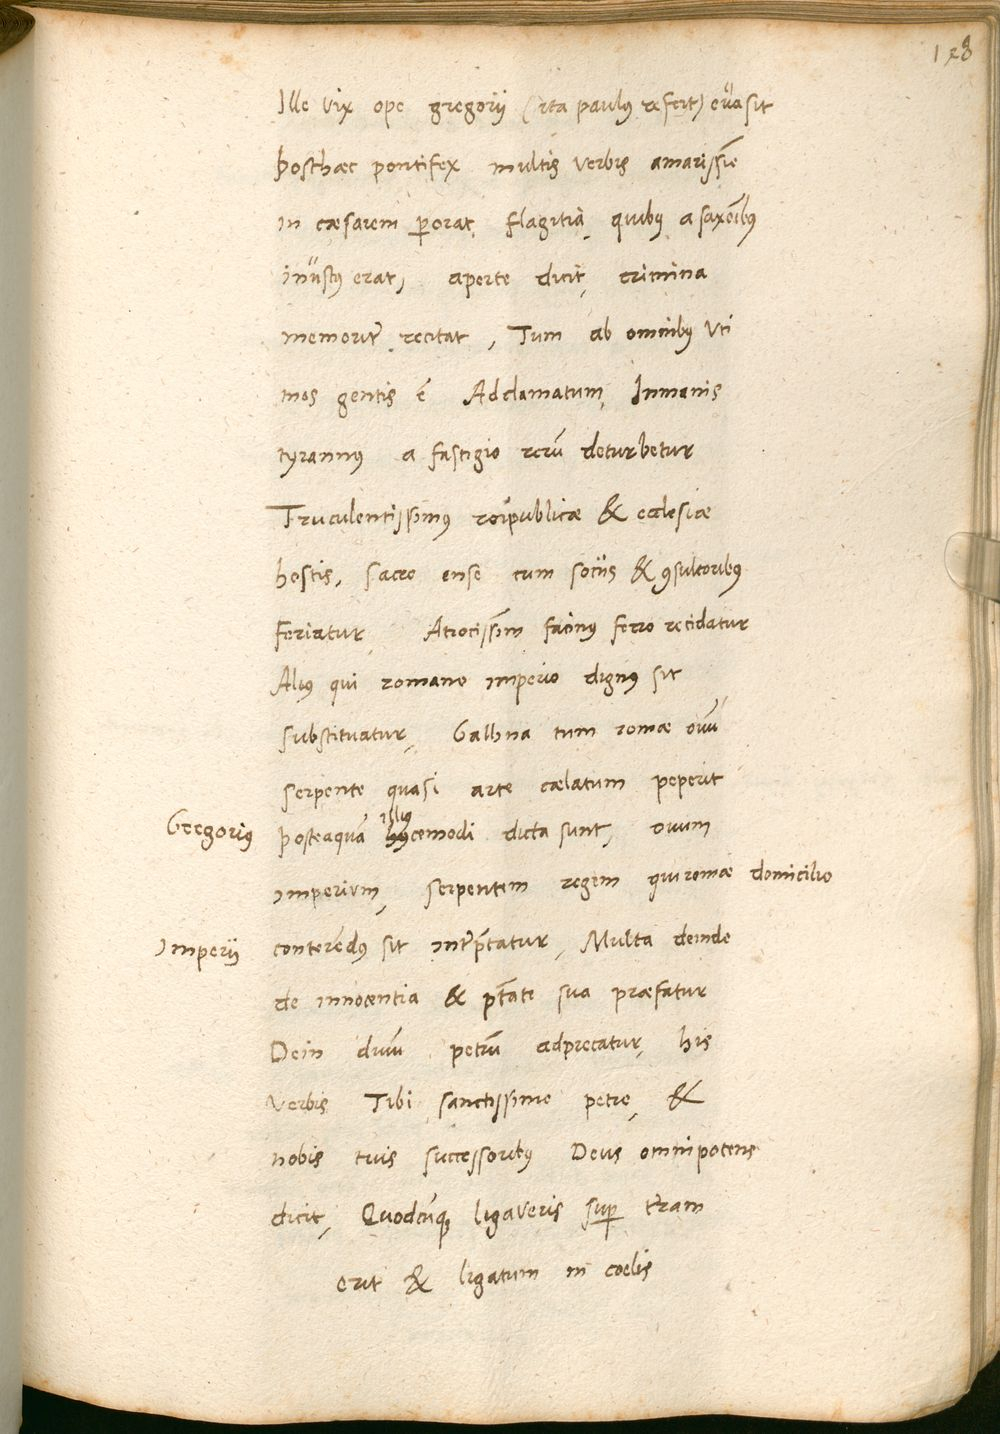 128
Ille vix ope gregorij (ita paulus refert) evasit
Posthæc pontifex multis verbis amarissīe
in cæsarem ꝑorat, flagitia, quibus a saxōibus
inustus erat, aperte dicit, crimina
memorit̃ recitat, Tum ab omnibus vti
mos gentis ē Adclamatum, Inmanis
tyrannus a fastigio rerū deturbetur
Truculentissimus reipublicæ & ecclesiæ
hostis, sacro ense cum sociis & ꝯsultoribus
feriatur, Atrocissīm facinus ferro recidatur
Alius qui romano imperio dignus sit
substituatur, Gallina tum romæ ovū
serpente quasi arte cælatum peperit
Gregorius posteaquā illius hucemodi dicta sunt, ovum
imperium, serpentem regem qui romæ domicilio
Imperij conterēdus sit int̃p̄tatur, Multa deinde
de innocentia & p̄tate sua præfatur
Dein divū petrū adprecatur, his
verbis Tibi sanctissime petre, &
nobis tuis successoribus Deus omnipotens
dicit, Quodcūq; ligaveris suꝑ t̃ram
erit & ligatum in coelis